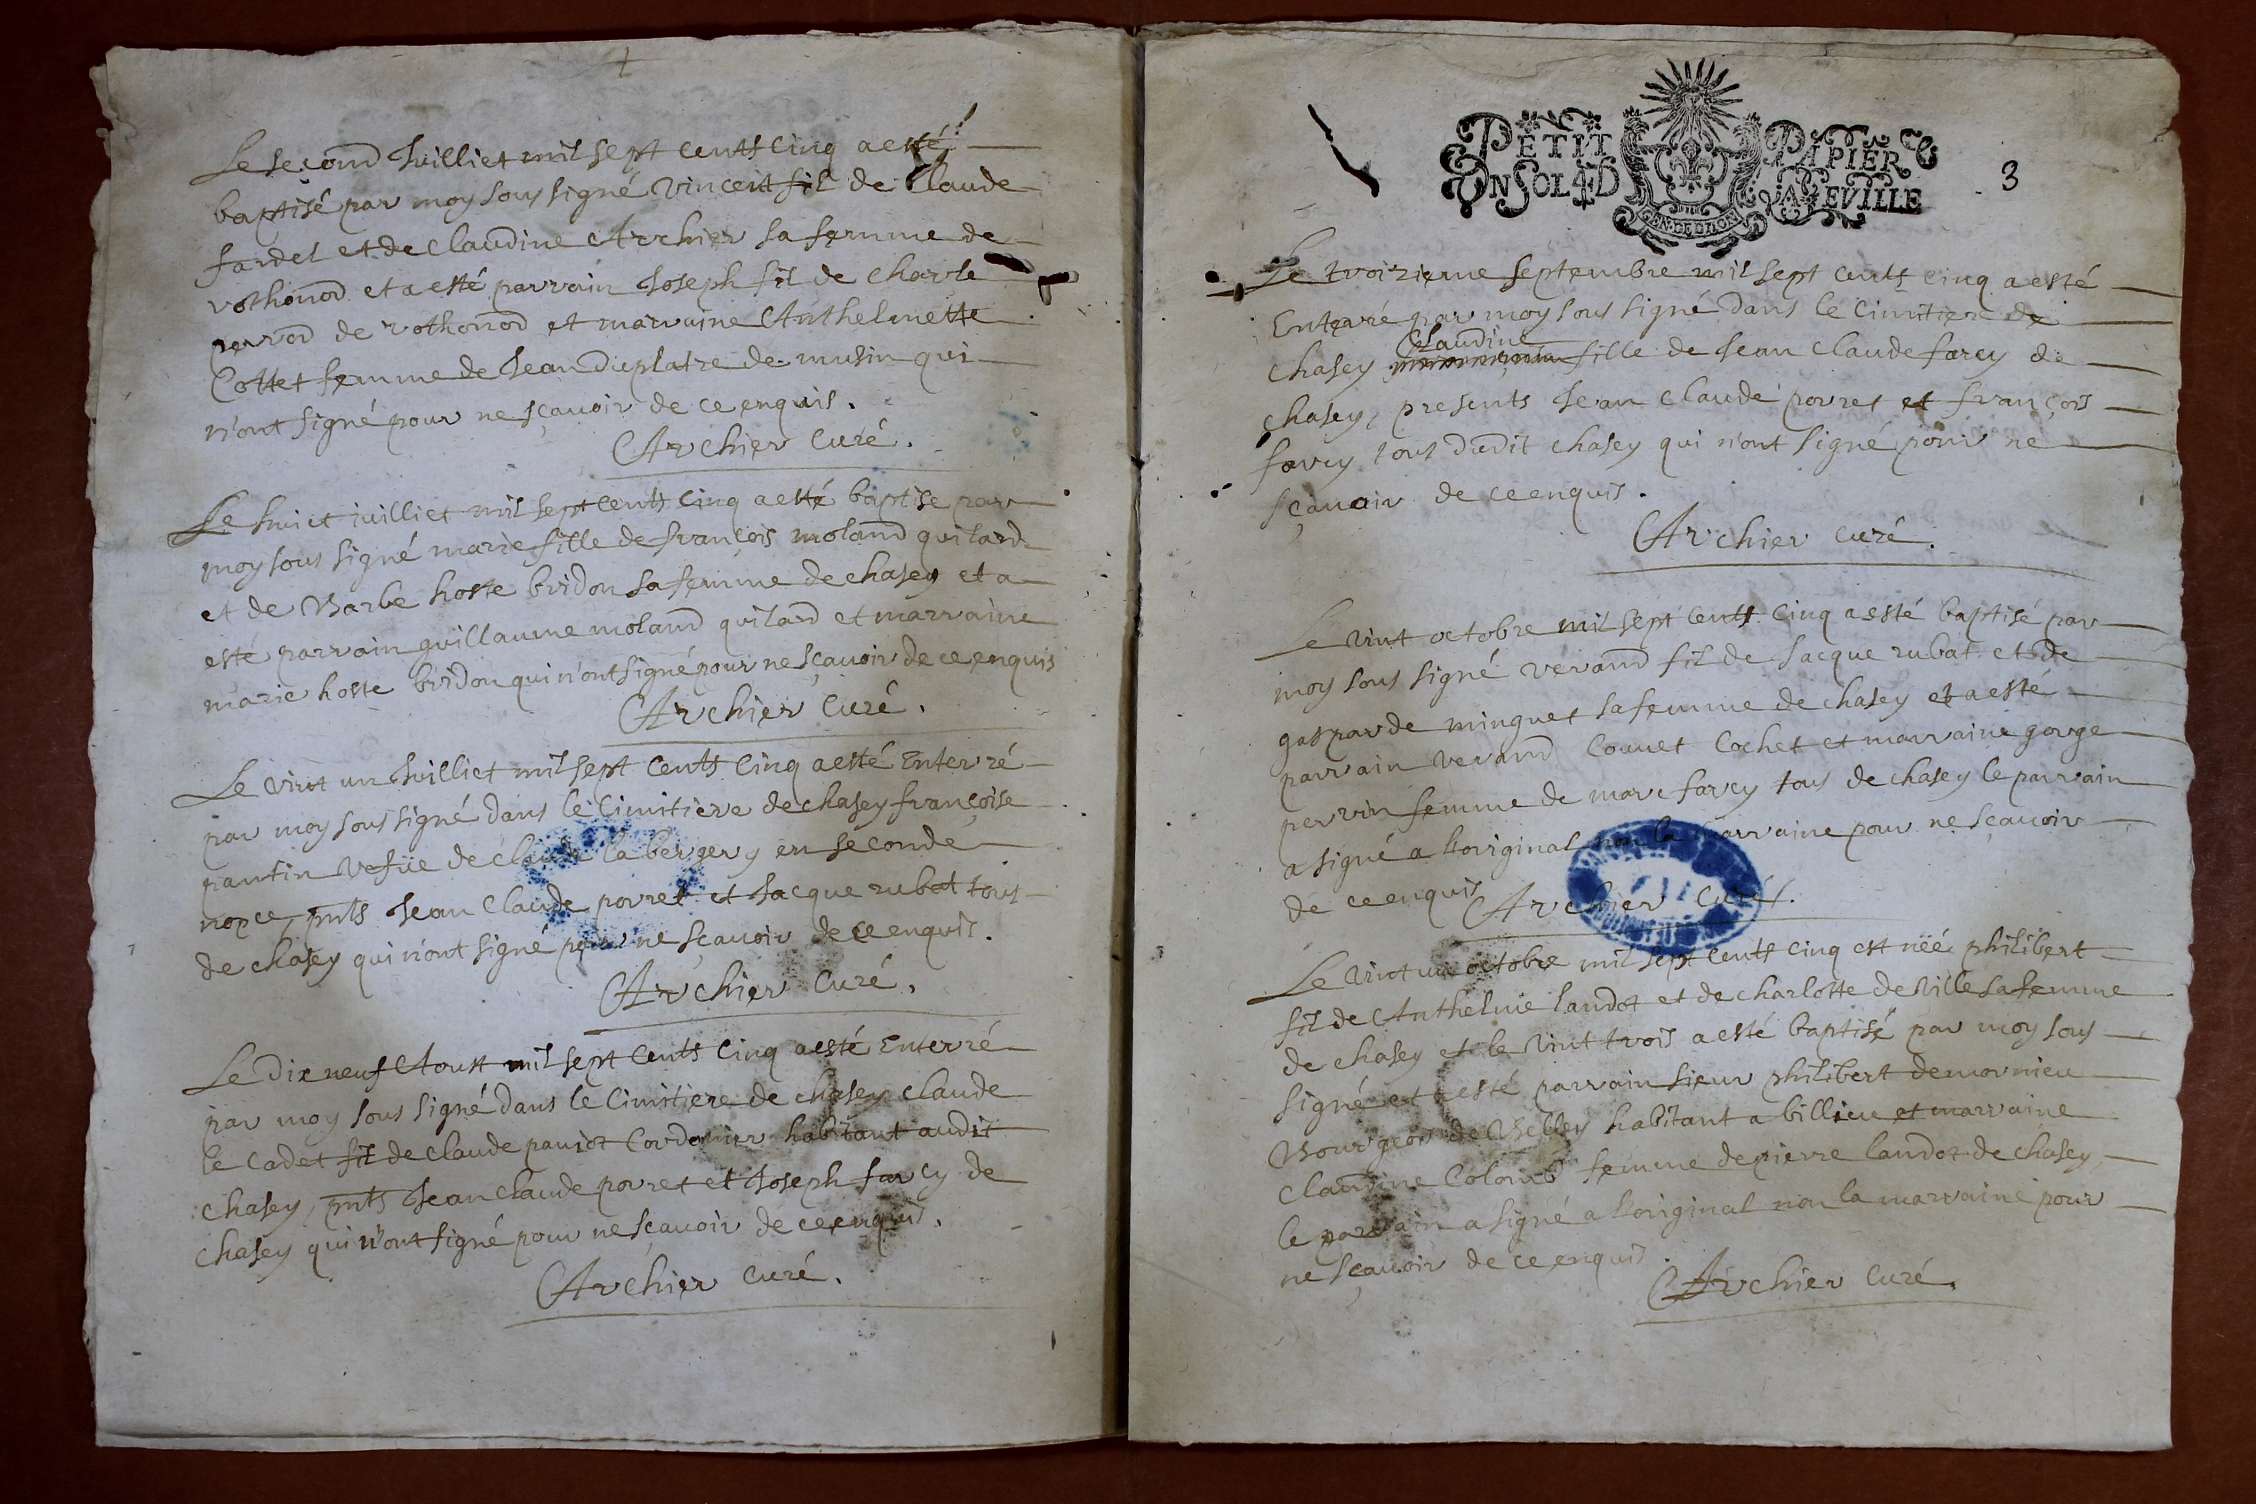 Le second Juilliet mil sept cents cinq a esté
baptisé par moy sous signé Vincent fil de Claude
fardel et de Claudine Archier sa femme de
rothonod et a esté parrain Joseph fil de Charle
perrod de rothonod et marraine Anthelmette
Cottet femme de Jean Duplatre de musin qui
n'ont signé pour ne sçavoir de ce enquis.
Archier Curé.
Le huict juilliet mil sept cents cinq a esté baptisé par
moy sous signé marie fille de françois moland quilard
et de Barbe hoste bridon sa femme de chasey et a
esté parrain guillaume moland quilard et marraine
marie hoste bridon qui n'ont signé pour ne sçavoir de ce enquis
Archier Curé.
Le vint un Juilliet mil sept cents cinq a esté Enterré
par moy sous signé dans le Cimitiere de chasey françoise
pantin Vefüe de claude la bergery en seconde
nopce, pnts Jean Claude porret et Jacque rubat tous
de chasey qui n'ont signé pour ne sçavoir de ce enquis.
Archier Curé.
Le Dix neuf Aoust mil sept cents cinq a esté Enterré
par moy sous signé dans le Cimitiere de chasey claude
le cadet fil de claude paviot Cordonier habitant audit
chasey, pnts Jean claude porret et Joseph farcy de
chasey qui n'ont signé pour ne sçavoir de ce enquis.
Archier Curé.
PETIT PAPIER
UN SOL 4 D LA FEVILLE
3
Le troizieme septembre mil sept cents cinq a esté
Enterré par moy sous signé dans le Cimitiere de
Claudine
chasey fille de Jean Claude farcy de
chasey, presents Jean Claude porret et françois
farcy tous dudit chasey qui n'ont signé pour ne
sçavoir de ce enquis.
Archier Curé.
Le Vint octobre mil sept cents cinq a esté baptisé par
moy sous signé verand fil de Jacque rubat et de
gasparde minguet sa femme de chasey et a esté
parrain verand Couvet Cochet et marraine gorge
perrin femme de marc farcy tous de chasey le parrain
a signé a l'original non la marraine pour ne sçavoir
de ce enquis
Archier Curé.
Le Vint un octobre mil sept cents cinq est néé philibert
fil de Anthelme landot et de charlotte deville sa femme
de chasey et le Vint trois a esté baptisé par moy sous
signé et a esté parrain sieur philibert demornieu
Bourgeois de Belley habitant a billieu et marraine
Claudine Colomb femme de pierre landot de chasey,
le parrain a signé a l'original non la marraine pour
ne sçavoir de ce enquis.
Archier Curé.